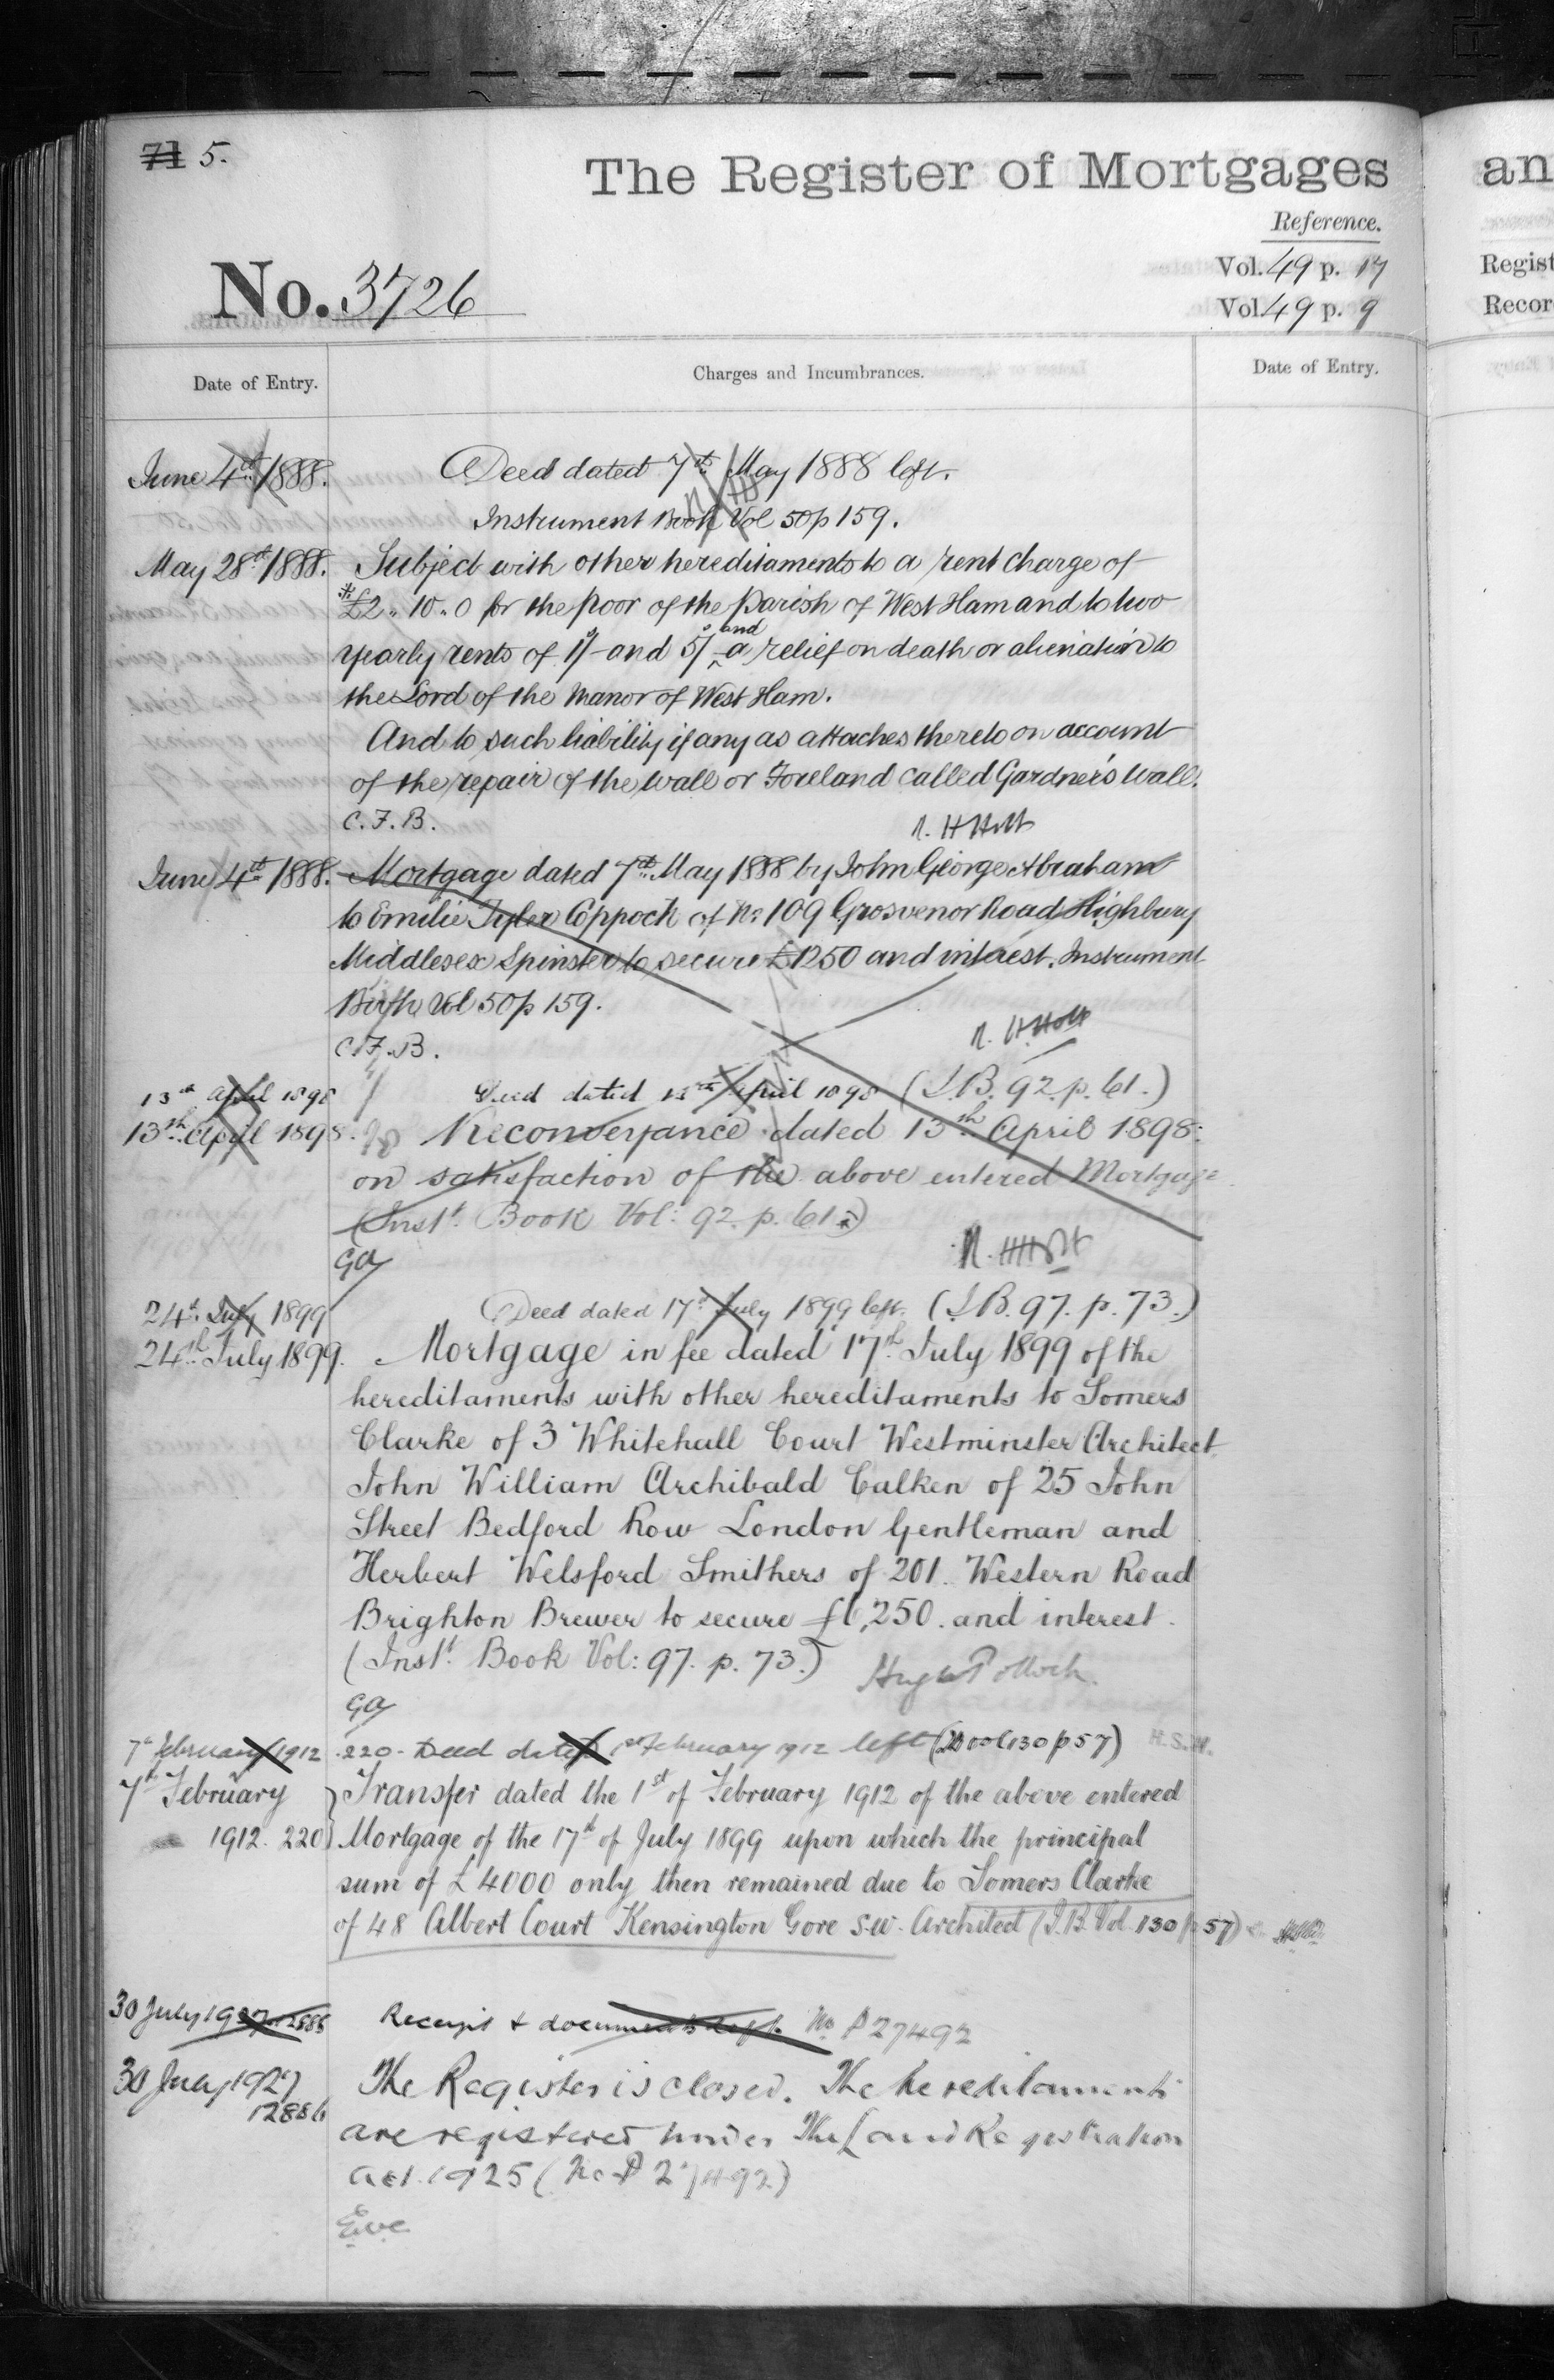 71 5.
The Register of Mortgages
an
Reference.
No. 3726
Vol. 49 p. 17
Vol. 49 p. 9
Regist
Recor
Date of Entry.
Charges and Incumbrances.
Date of Entry.
June 4th 1888. Deed dated 7th May 1888 left.
Instrument Book Vol 50 p 159.
May 28th 1888. Subject with other hereditaments to a rent charge of
*£2.. 10.. 0 for the poor of the Parish of West Ham and to two
yearly rents of 1s/- and 5s/- and a relief on death or alienation to
the Lord of the Manor of West Ham.
And to such liability if any as attaches thereto on account
of the repair of the wall or Foreland called Gardner's Wall.
C.F.B. R. H Holt
June 4th 1888. Mortgage dated 7th May 1888 by John George Abraham
to Emilie Tyler Coppock of No 109 Grosvenor Road Highbury
Middlesex Spinster to secure £1250 and interest. Instrument
Book Vol 50 p 159.
C.F.B. R. H. Holt
13th April 1898 Deed dated 13th April 1898 (I.B. 92. p. 61.)
13th April 1898. Reconveyance dated 13th April 1898.
on satisfaction of the above entered Mortgage
(Inst. Book Vol: 92. p. 61.)
GA R. H Holt
24th July 1899 Deed dated 17th July 1899 left. (I.B. 97. p. 73.)
24th July 1899. Mortgage in fee dated 17th July 1899 of the
hereditaments with other hereditaments to Somers
Clarke of 3 Whitehall Court Westminster Architect
John William Archibald Calken of 25 John
Street Bedford Row London Gentleman and
Herbert Welsford Smithers of 201. Western Road
Brighton Brewer to secure £6,250. and interest.
(Inst. Book Vol: 97. p. 73.) Hugh Pollock.
GA
7th February 1912 220. Deed dated 1st February 1912 left (IB vol 130 p 57) H.S.H.
7th February Transfer dated the 1st of February 1912 of the above entered
1912. 220 Mortgage of the 17th of July 1899 upon which the principal
sum of £4000 only then remained due to Somers Clarke
of 48 Albert Court Kensington Gore S.W. Architect (I.B. Vol 130 p 57)
30 July 1927 Receipt & documents left. No P 27492
30 July 1927 The Register is closed. The hereditaments
12886 are registered under The Land Registration
Act. 1925 (No P 27492)